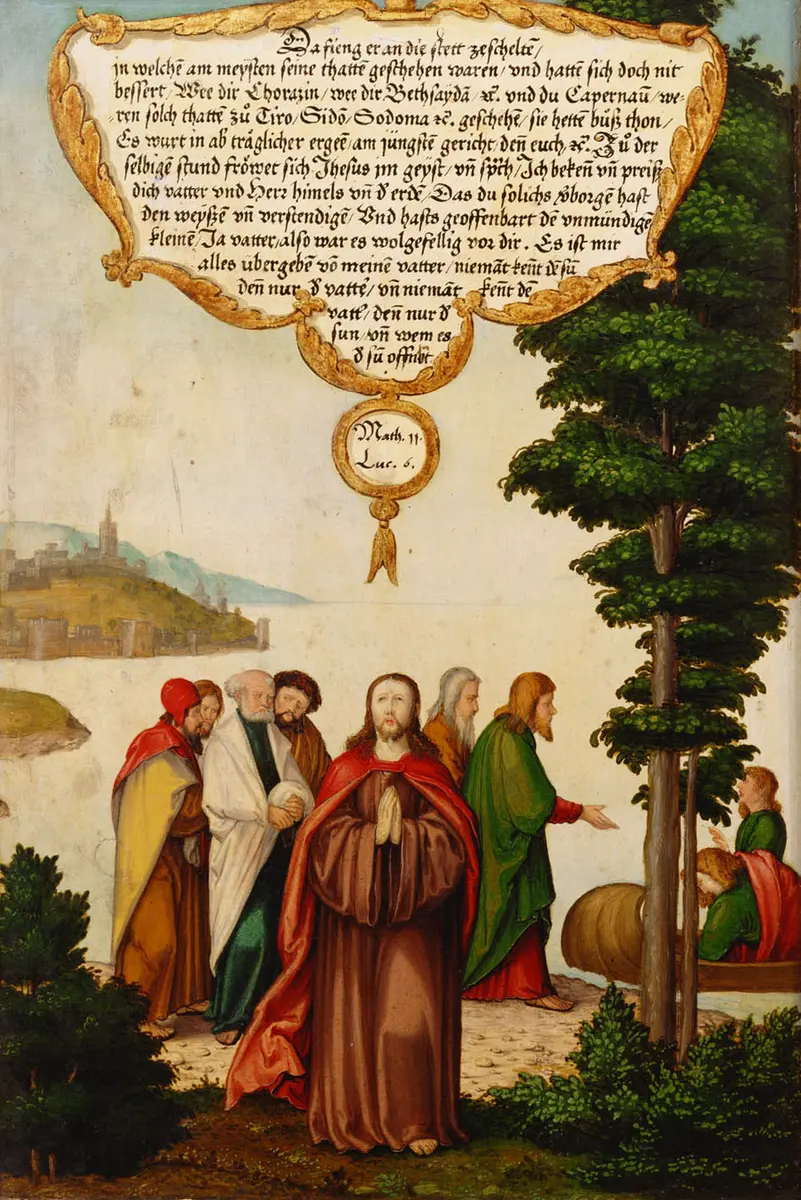 Da fieng er an die stett zescheltē/
jn welchē am meysten seine thattē geschehen waren/ vnd hattē sich doch nit
bessert/ Wee dir Chorazin/ wee dir Bethsaydā/ ꝛc. vnd du Capernaū/ we-
ren solch thattē zů Tiro/ Sidō/ Sodoma ꝛc. geschehē/ sie hettē bůß thon/
Es wurt in ab träglicher ergeē/ am jüngstē gericht/ deñ euch/ ꝛc. Zů der
selbigē stund fröwet sich Jhesus im geyst/ vñ sp̃ch/ Ich bekeñ vñ preiß
dich vatter vnd Herr himels vñ d' erdē/ Das du solichs v'borgē hast
den weyßē vñ verstendigē/ Vnd hasts geoffenbart dē vnmündigē
kleinē/ Ja vatter/ also war es wolgefellig vor dir. Es ist mir
alles übergebē vō meinē vatter/ niemāt keñt dē sū
deñ nur d' vatt'/ vñ niemāt keñt dē
vatt'/ deñ nur d'
sun/ vñ wem es
d' sū offnb't
Math. 11.
Luc. 6.